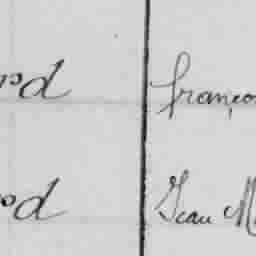 rd franço
rd Jean M